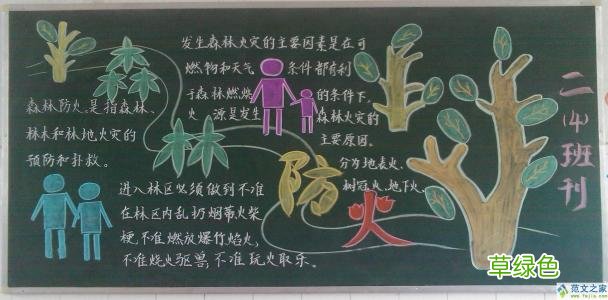 发生森林火灾的主要因素是在可
燃物和天气条件都有利
于森林燃烧的条件下,
火源是发生森林火灾的
主要原因。
分为地表火、
树冠火、地下火。
森林防火,是指森林、
林木和林地火灾的
预防和扑救。
进入林区必须做到不准
在林区内乱扔烟蒂火柴
梗,不准燃放爆竹焰火,
不准烧火驱兽,不准玩火取乐。
防火
二(4)班刊
草绿色
范文之家